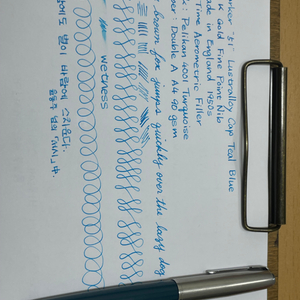 arker '51' Lustraloy Cap Teal Blue
K Gold Fine Point Nib
ade in England 1950s
Time Aerometric Filler
: Pelikan 4001 Turquoise
per : Double A A4 90 gsm
brown fox jumps quickly over the lazy dog
wetness
에도 별이 바람에 스치운다.
윤동주 님의 「서시」 中